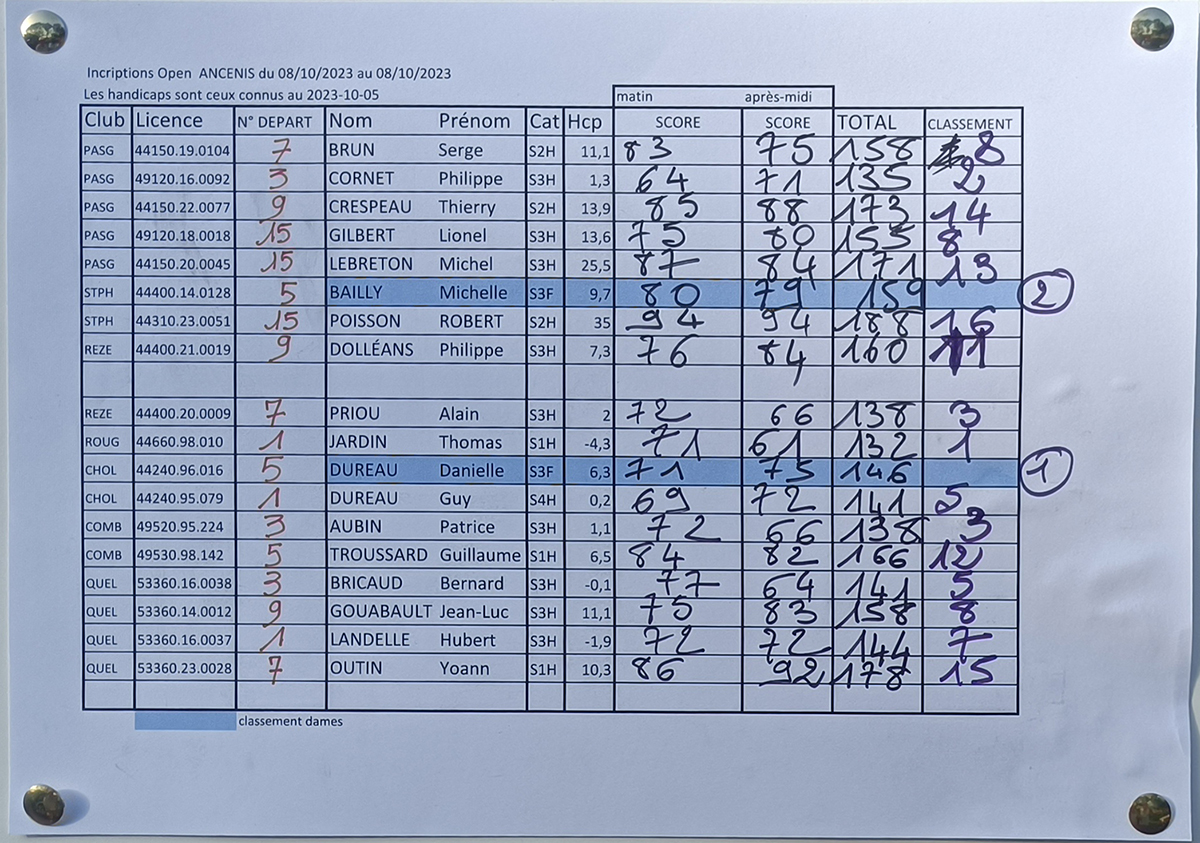 Incriptions Open ANCENIS du 08/10/2023 au 08/10/2023
Les handicaps sont ceux connus au 2023-10-05 matin après-midi
Club Licence N° DEPART Nom Prénom Cat Hcp SCORE SCORE TOTAL CLASSEMENT
PASG 44150.19.0104 7 BRUN Serge S2H 11,1 83 75 158 8
PASG 49120.16.0092 3 CORNET Philippe S3H 1,3 64 71 135 2
PASG 44150.22.0077 9 CRESPEAU Thierry S2H 13,9 85 88 173 14
PASG 49120.18.0018 15 GILBERT Lionel S3H 13,6 75 80 155 8
PASG 44150.20.0045 15 LEBRETON Michel S3H 25,5 87 84 171 13
STPH 44400.14.0128 5 BAILLY Michelle S3F 9,7 80 79 159 2
STPH 44310.23.0051 15 POISSON ROBERT S2H 35 94 94 188 16
REZE 44400.21.0019 9 DOLLÉANS Philippe S3H 7,3 76 84 160 11
REZE 44400.20.0009 7 PRIOU Alain S3H 2 72 66 138 3
ROUG 44660.98.010 1 JARDIN Thomas S1H -4,3 71 61 132 1
CHOL 44240.96.016 5 DUREAU Danielle S3F 6,3 71 75 146 1
CHOL 44240.95.079 1 DUREAU Guy S4H 0,2 69 72 141 5
COMB 49520.95.224 3 AUBIN Patrice S3H 1,1 72 66 138 3
COMB 49530.98.142 5 TROUSSARD Guillaume S1H 6,5 84 82 166 12
QUEL 53360.16.0038 3 BRICAUD Bernard S3H -0,1 77 64 141 5
QUEL 53360.14.0012 9 GOUABAULT Jean-Luc S3H 11,1 75 83 158 8
QUEL 53360.16.0037 1 LANDELLE Hubert S3H -1,9 72 72 144 7
QUEL 53360.23.0028 7 OUTIN Yoann S1H 10,3 86 92 178 15
classement dames